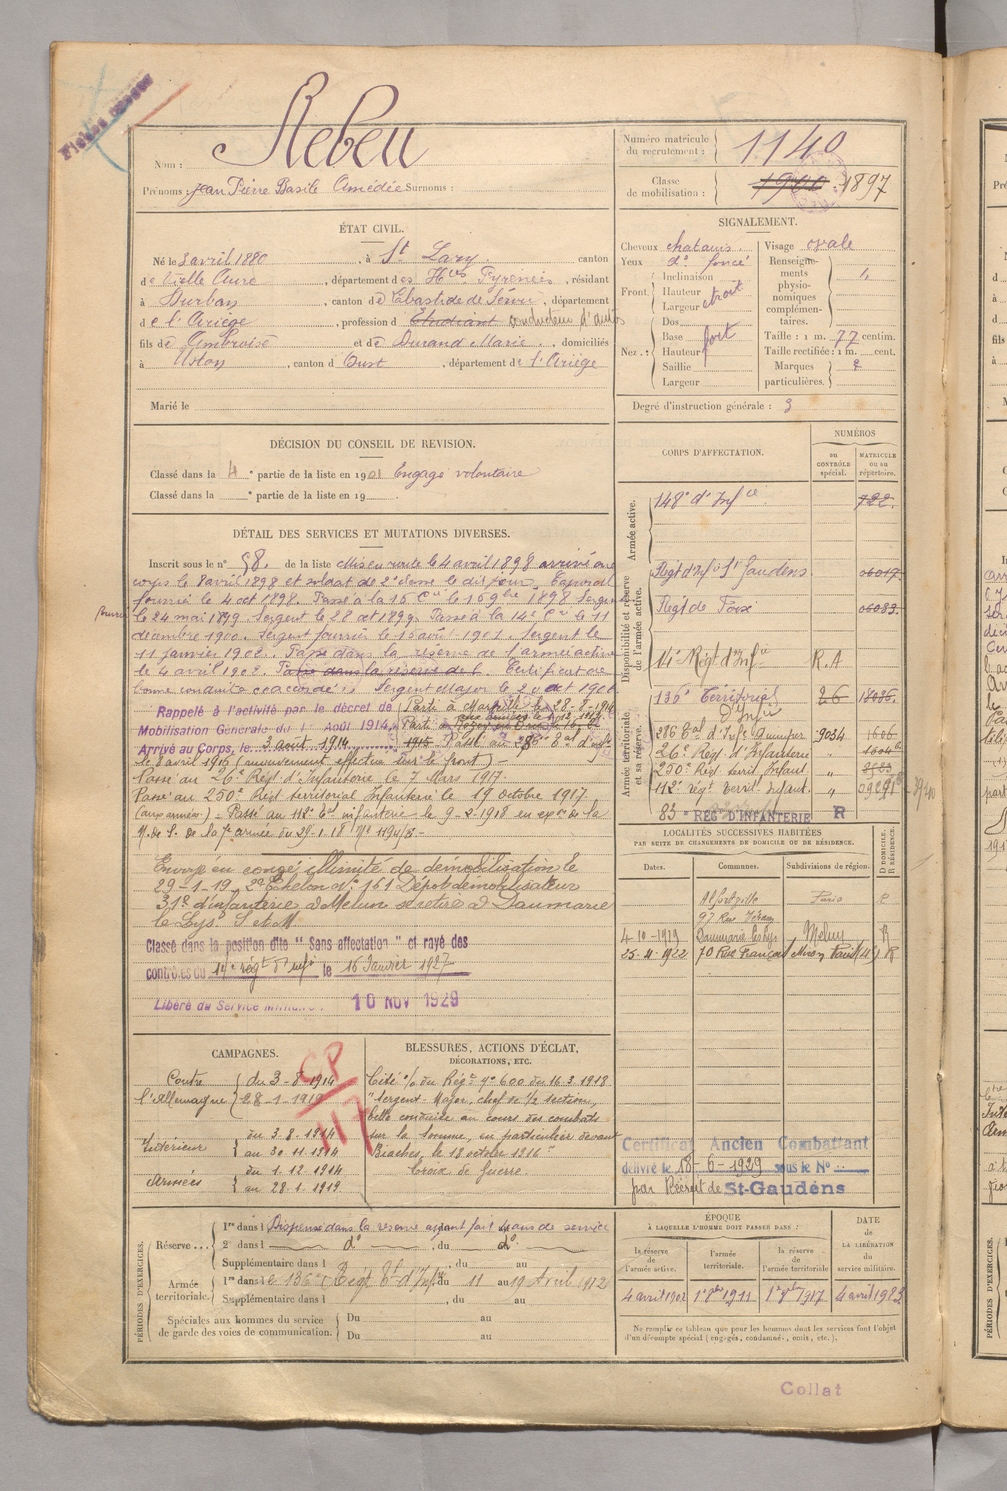 Fiches
Nom : Rebeu
Prénoms : Jean Pierre Basile Amédée Surnoms :
Numéro matricule du recrutement : 1140
Classe de mobilisation : 1900 1897
ÉTAT CIVIL.
Né le 8 avril 1880, à St Lary, canton
de Vielle Aure, département des Htes Pyrénées, résidant
à Durban, canton de Labastide de Sérou, département
de l'Ariège, profession d' Etudiant conducteur d'autos
fils de Ambroise et de Durand Marie, domiciliés
à Ustou, canton d Oust, département de l'Ariège
Marié le
SIGNALEMENT.
Cheveux chatains. Visage ovale
Yeux do foncé
Front. Inclinaison
Hauteur
Largeur étroit
Nez. Dos
Base fort
Hauteur
Saillie
Largeur
Renseignements physionomiques complémentaires. "
Taille : 1 m. 77 centim.
Taille rectifiée : 1 m. cent.
Marques particulières.
Degré d'instruction générale : 3
DÉCISION DU CONSEIL DE REVISION.
Classé dans la 4e partie de la liste en 1901 Engagé volontaire
Classé dans la e partie de la liste en 19 .
DÉTAIL DES SERVICES ET MUTATIONS DIVERSES.
Inscrit sous le n° 58. de la liste Mis en route le 4 avril 1898 arrivé au
corps le 8 avril 1898 et soldat de 2e classe le dit jour, Caporal
fourrier le 4 oct 1898. Passé à la 16 Cie le 16 9bre 1898 Sergent
fourrier le 24 mai 1899 Sergent le 28 oct 1899. Passé à la 14e Cie le 11
décembre 1900. Sergent fourrier le 16 août 1901. Sergent le
11 janvier 1902. Passé dans la réserve de l'armée active
le 4 avril 1902. Passé dans la réserve de l. Certificat de
bonne conduite accordé. Sergent Major le 20 oct 1908
Rappelé à l'activité par le décret de Parti à Marseille le 28-8-1914
Mobilisation Générale du 1er Août 1914, Parti
Arrivé au Corps, le 3 août 1914 1915 Passé au 286e Rat d'infie
le 8 avril 1916 (mouvement effectué sur le front) -
Passé au 26e Régt d'Infanterie le 7 Mars 1917.
Passé au 250e Régt territorial Infanterie le 19 octobre 1917
(aux armées) - Passé au 112e Ral infanterie le 9-2-1918 en exon de la
N. de S. de la 7e armée du 29-1-18 No 1194/3 -
Envoyé en congé illimité de démobilisation le
29-1-19 2e Echelon No 161 Dépôt démobilisateur
31e d'infanterie à Melun se retire à Dammarie
le Lys. S et M
Classé dans la position dite "Sans affectation" et rayé des
contrôles du 14e régt d'infie le 16 Janvier 1927
Libéré du Service militaire : 10 NOV 1929
CORPS D'AFFECTATION.
NUMÉROS
au CONTRÔLE spécial.
MATRICULE ou au répertoire.
Armée active.
148e d'Infie 722.
Disponibilité et réserve de l'armée active.
Regt d'Infie St Gaudens 06017
Regt de Foix 06083
14e Régt d'Infie R.A
Armée territoriale et sa réserve.
136e Territorial d'Infie 26 18036.
286 Ral d'Infie Quimper 9034 1606
26e Rég. d'Infanterie "
250e Régt territ. Infant. " 2563
112e régt Territ. Infant. "
83 e REGt D'INFANTERIE R
LOCALITÉS SUCCESSIVES HABITÉES
PAR SUITE DE CHANGEMENTS DE DOMICILE OU DE RÉSIDENCE.
Dates. Communes. Subdivisions de région. D. DOMICILE. R. RÉSIDENCE.
Alfortville Paris R
97 Rue Véron
4-10-1919 Dammarie les Lys Melun R
25-4-1922 70 Rue François Miron Paris (4) R
CAMPAGNES.
Contre l'Allemagne du 3-8-1914
28-1-1919
Intérieur du 3-8-1914
au 30 11-1914
Armées du 1-12-1914
au 28-1-1919
CP
117
BLESSURES, ACTIONS D'ÉCLAT,
DÉCORATIONS, ETC.
Cité o/o du Régt no 600 du 16-3-1918
"Sergent-Major, chef de 1/2 section,
belle conduite au cours des combats
sur la Somme, en particulier devant
Biaches, le 18 octobre 1916"
Croix de Guerre.
Certificat Ancien Combattant
délivré le 18-6-1929 sous le No
par Recrut de St-Gaudens
PÉRIODES D'EXERCICES.
Réserve... 1re dans l Dispensé dans la réserve ayant fait 4 ans de service
2e dans l do, du do
Supplémentaire dans l, du au
Armée territoriale. 1re dans le 136e Régt Tal d'Infie du 11 au 19 Avril 1912
Supplémentaire dans l, du au
Spéciales aux hommes du service de garde des voies de communication. Du au
Du au
ÉPOQUE
À LAQUELLE L'HOMME DOIT PASSER DANS :
la réserve de l'armée active.
l'armée territoriale.
la réserve de l'armée territoriale
DATE de LA LIBÉRATION du service militaire.
4 avril 1902 1er 8bre 1911 1er 8bre 1917 4 avril 1923
Ne remplir ce tableau que pour les hommes dont les services font l'objet
d'un décompte spécial (engagés, condamnés, omis, etc.).
Collat